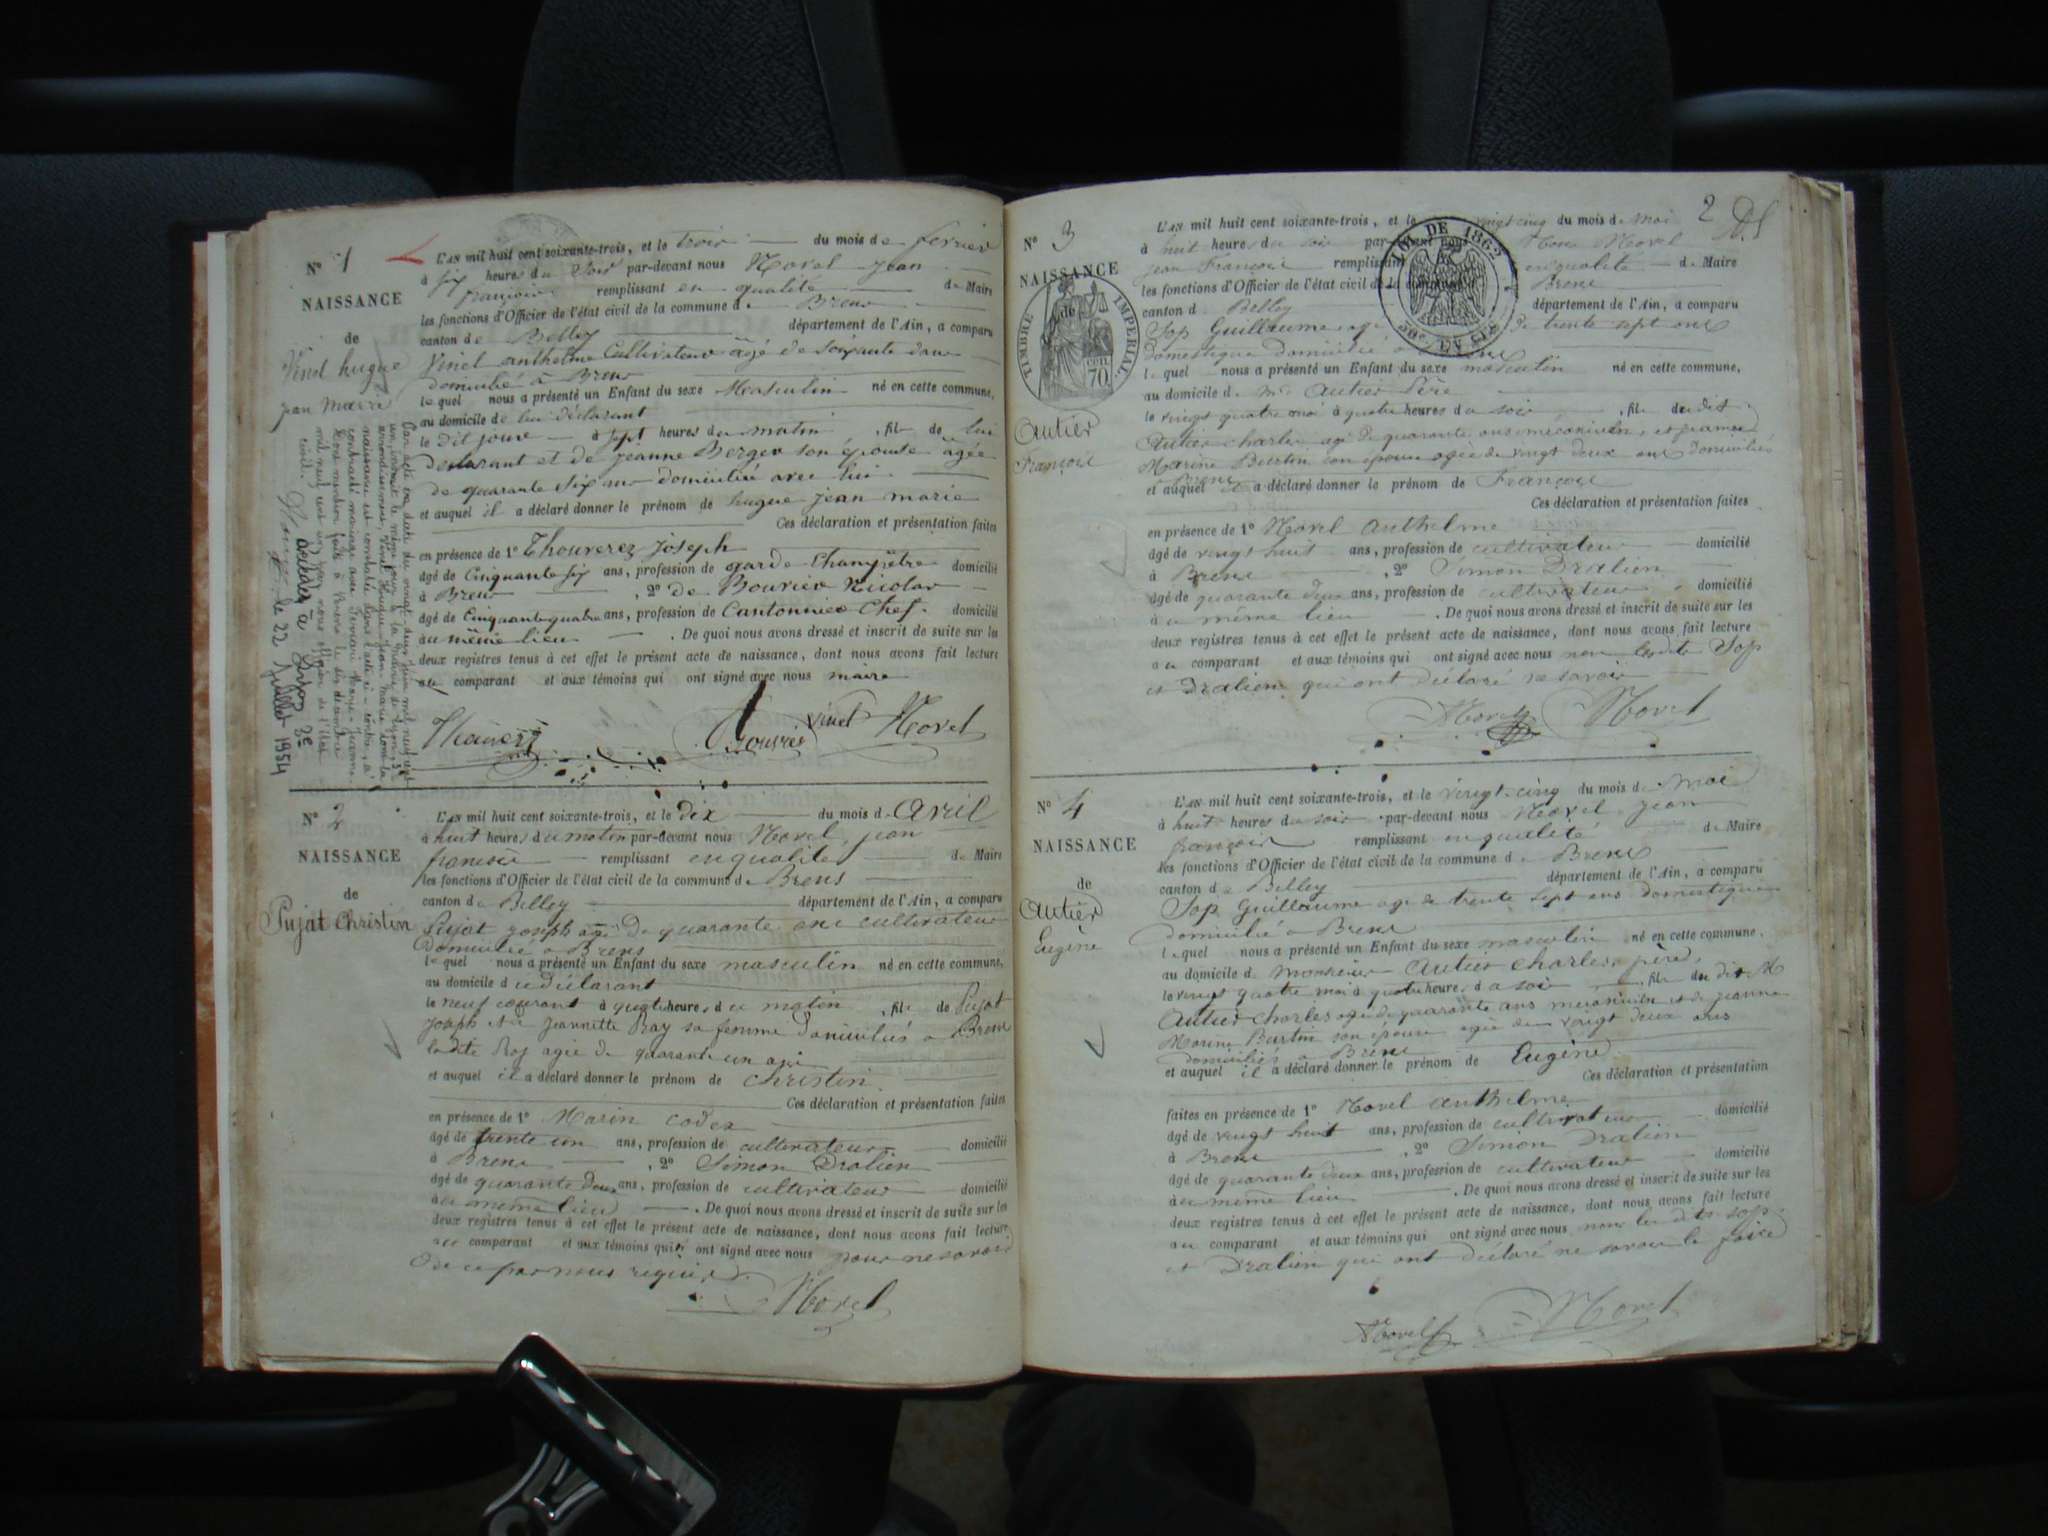 N° 1
NAISSANCE
de
Vinet hugue
jean Marie
L'AN mil huit cent soixante-trois, et le trois du mois de fevrier
à six heures du soir par-devant nous Morel jean
françois remplissant en qualité de Maire
les fonctions d'Officier de l'état civil de la commune de Brens
canton de Belley département de l'Ain, a comparu
Vinet anthelme Cultivateur âgé de soixante
domicilié à Brens
lequel nous a présenté un Enfant du sexe Masculin né en cette commune,
au domicile de lui déclarant
le dit jour à sept heures du matin, fils de lui
declarant et de jeanne Berger son épouse âgée
de quarante six ans domiciliée avec lui
et auquel il a déclaré donner le prénom de hugue jean marie
Ces déclaration et présentation faites
en présence de 1° Thouverez joseph
âgé de Cinquante six ans, profession de garde Champêtre domicilié
à Brens, 2° de Bouvier Nicolas
âgé de Cinquante quatre ans, profession de Cantonnier Chef. domicilié
au même lieu. De quoi nous avons dressé et inscrit de suite sur les
deux registres tenus à cet effet le présent acte de naissance, dont nous avons fait lecture
au comparant et aux témoins qui ont signé avec nous maire
Bouvier vinet Morel
décédé à Lyon 3e
le 22 juillet 1954
N° 2
NAISSANCE
de
Pujat Christin
L'AN mil huit cent soixante-trois, et le dix du mois d Avril
à huit heures du matin par-devant nous Morel, jean
francois remplissant en qualité de Maire
les fonctions d'Officier de l'état civil de la commune de Brens
canton de Belley département de l'Ain, a comparu
Pujat joseph agé de quarante ans cultivateur
domicilié à Brens
lequel nous a présenté un Enfant du sexe masculin né en cette commune,
au domicile du déclarant
le neuf courant à quatre heures du matin, fils de Pujat
joseph et de jeannette Ray sa femme domiciliés a Brens
ladite Ray agée de quarante un ans
et auquel il a déclaré donner le prénom de christin
Ces déclaration et présentation faites
en présence de 1° Marin codex
âgé de trente un ans, profession de cultivateur domicilié
à Brens, 2° Simon Dralien
âgé de quarante deux ans, profession de cultivateur domicilié
au même lieu. De quoi nous avons dressé et inscrit de suite sur les
deux registres tenus à cet effet le présent acte de naissance, dont nous avons fait lecture
au comparant et aux témoins qui ont signé avec nous pour ne savoir
de ce par nous requis
Morel
2
N° 3
NAISSANCE
de
TIMBRE IMPERIAL
70 cen.
LOI DE 1862
Autier
François
L'AN mil huit cent soixante-trois, et le vingt cinq du mois de mai
à huit heures du soir par-devant nous Morel
jean François remplissant en qualité de Maire
les fonctions d'Officier de l'état civil de la commune Brens
canton d Belley département de l'Ain, a comparu
Sop Guillaume agé de trente sept ans
domestique domicilié à Brens
lequel nous a présenté un Enfant du sexe masculin né en cette commune,
au domicile de mr Autier Père
le vingt quatre mai à quatre heures du soir, fils du dit
Autier charles agé de quarante ans mecanicien, et jeanne
Marine Burtin son épouse agée de vingt deux ans domiciliés
Brens
et auquel il a déclaré donner le prénom de François
Ces déclaration et présentation faites
en présence de 1° Morel anthelme
âgé de vingt huit ans, profession de cultivateur domicilié
à Brens, 2° Simon Dralien
âgé de quarante deux ans, profession de cultivateur domicilié
au même lieu. De quoi nous avons dressé et inscrit de suite sur les
deux registres tenus à cet effet le présent acte de naissance, dont nous avons fait lecture
au comparant et aux témoins qui ont signé avec nous non lesdits Sop
et Dralien qui ont déclaré ne savoir
Morel Morel
N° 4
NAISSANCE
de
Autier
Eugène
L'AN mil huit cent soixante-trois, et le vingt-cinq du mois de mai
à huit heures du soir par-devant nous Morel jean
françois remplissant en qualité de Maire
les fonctions d'Officier de l'état civil de la commune de Brens
canton de Belley département de l'Ain, a comparu
Sop Guillaume agé de trente sept ans domestique
domicilié à Brens
lequel nous a présenté un Enfant du sexe masculin né en cette commune,
au domicile de monsieur Autier charles, père,
le vingt quatre mai à quatre heures du soir, fils du dit M
Autier charles agé de quarante ans mecanicien et de jeanne
Marine Burtin son épouse agée de vingt deux ans
domiciliés a Brens
et auquel il a déclaré donner le prénom de Eugène
Ces déclaration et présentation
faites en présence de 1° Morel anthelme
âgé de vingt huit ans, profession de cultivateur domicilié
à Brens, 2° Simon Dralien
âgé de quarante deux ans, profession de cultivateur domicilié
au même lieu. De quoi nous avons dressé et inscrit de suite sur les
deux registres tenus à cet effet le présent acte de naissance, dont nous avons fait lecture
au comparant et aux témoins qui ont signé avec nous non lesdits sop
et Dralien qui ont déclaré ne savoir le faire
Morel Morel